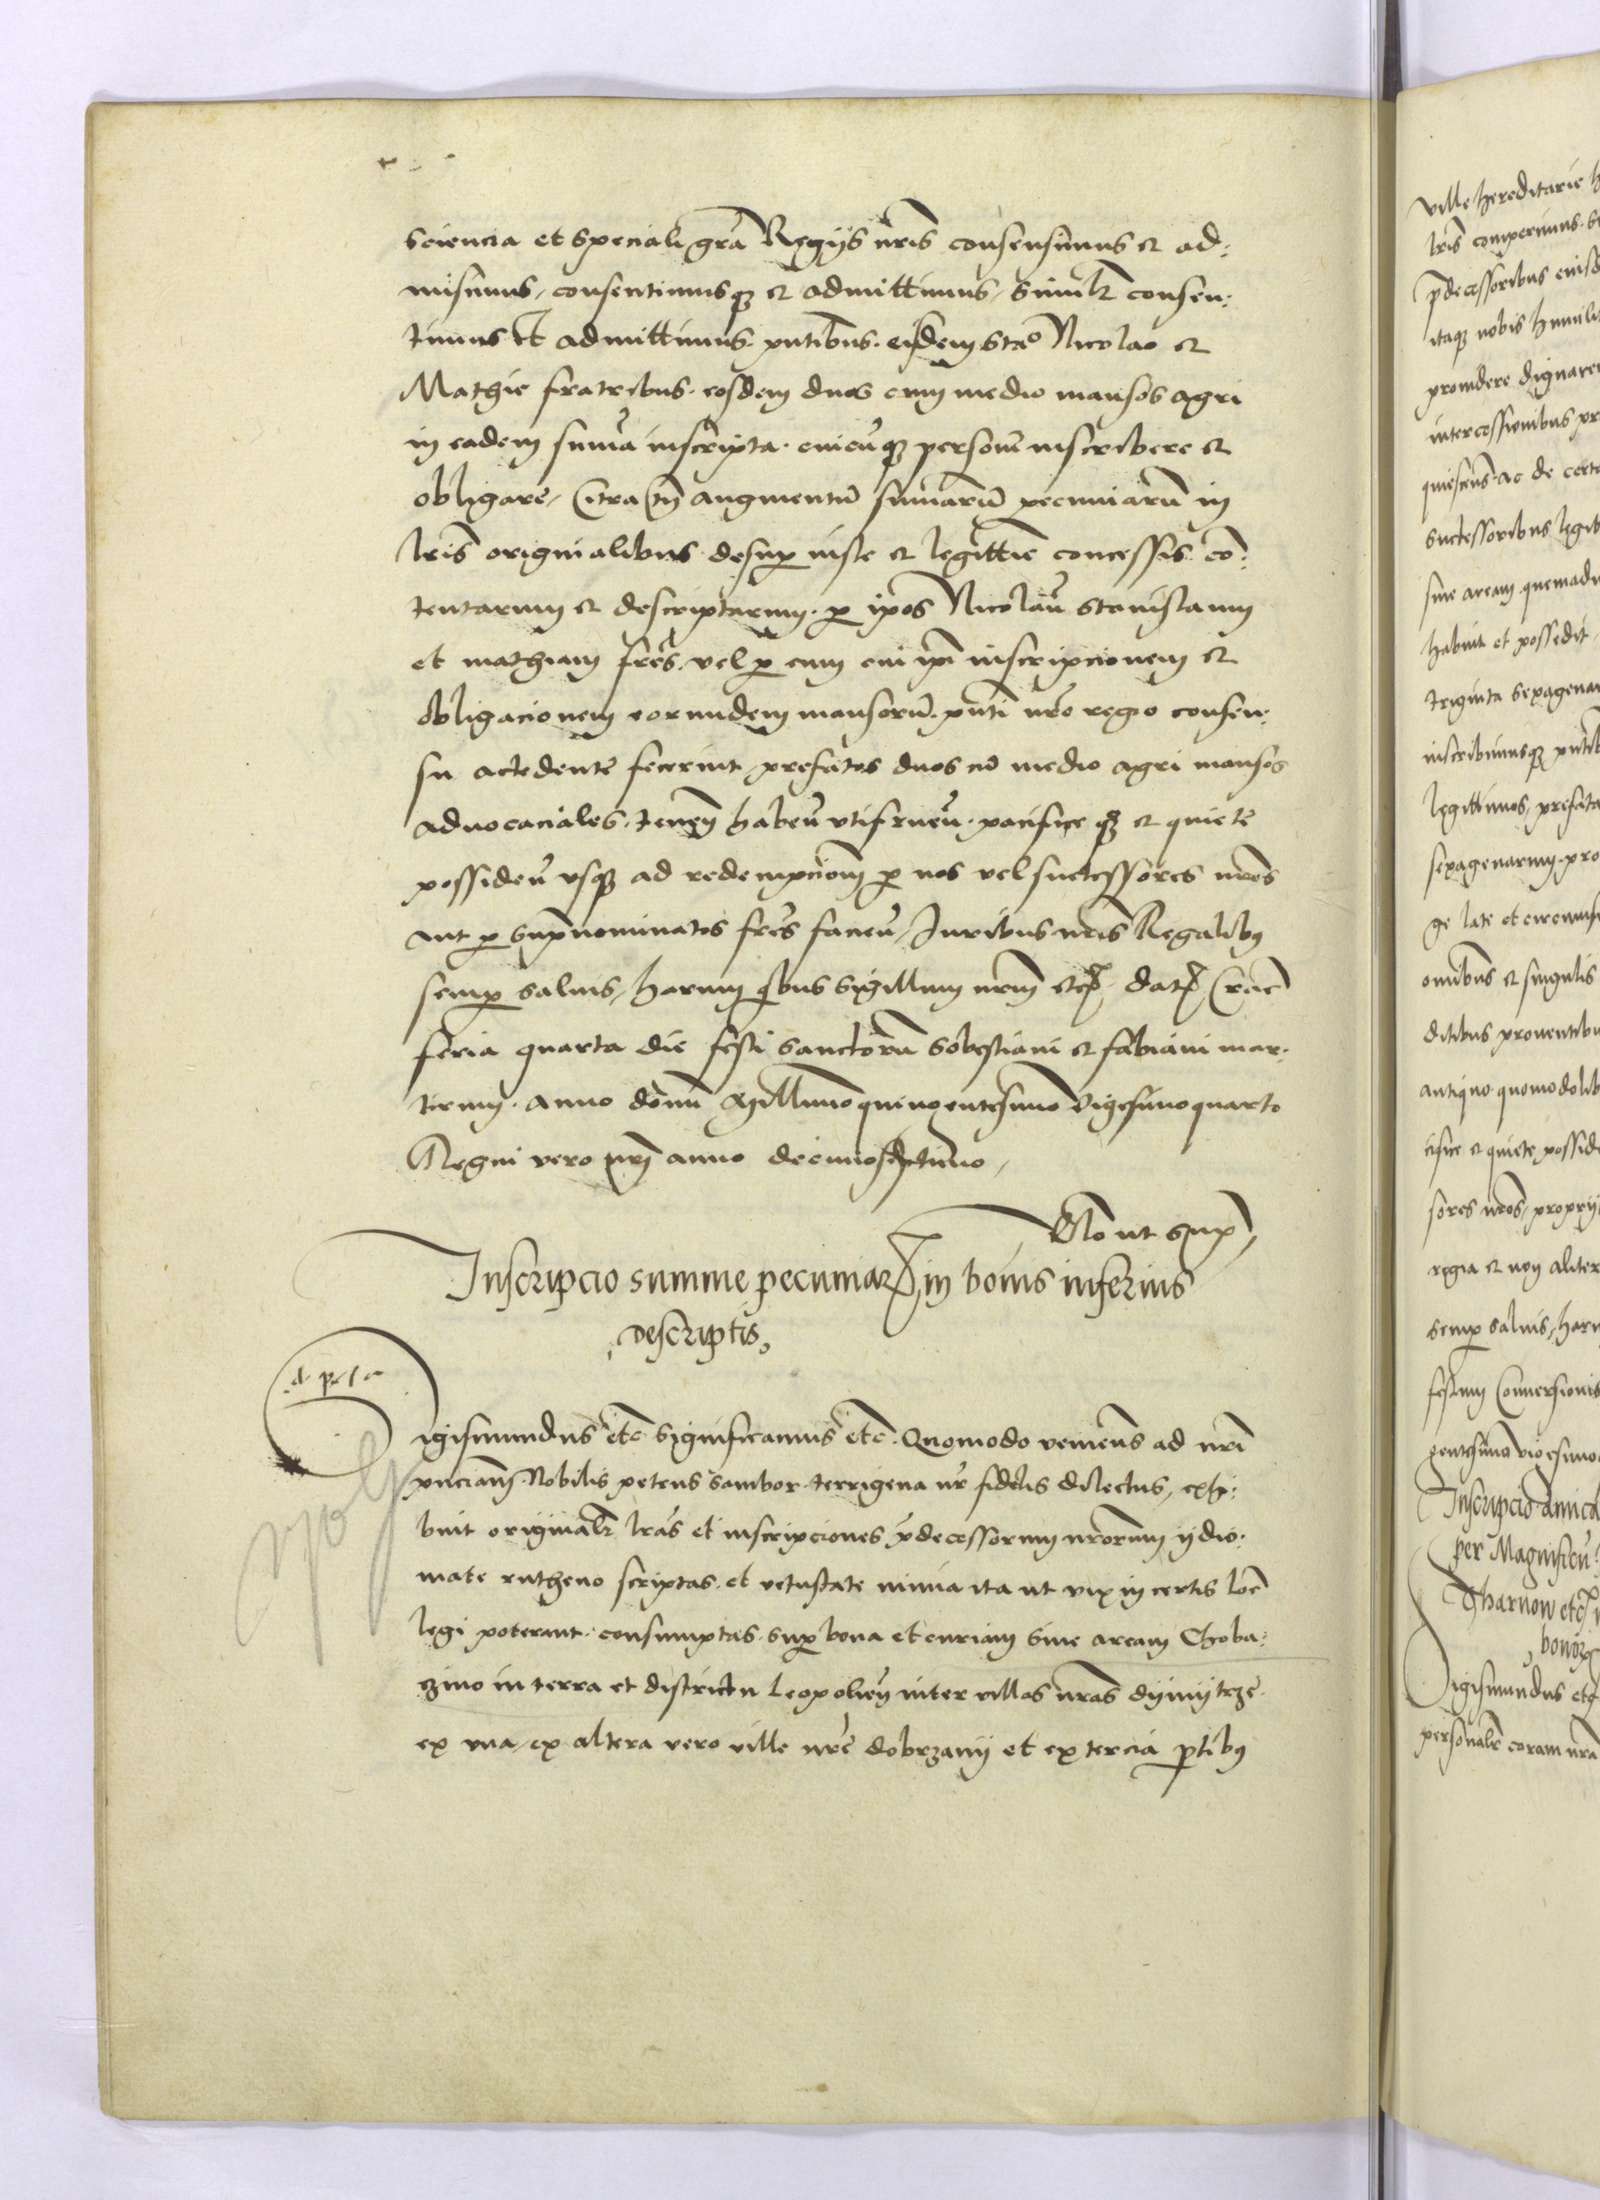 sciencia et speciali gra Regiis nris consensimus et ad:
misimus, consentimusq et admittimus, simulr consen:
timus et admittimus pntibus eisdem Stao Nicolao et
Mathie fratribus eosdem duos cum medio mansos agri
in eadem suma inscripta cuicuq persone inscribere et
obligare, Citra tn augmentu sumaru pecuniaru in
lris originalibus desup iuste et legittie concessis co:
tentarum et descriptarum p ipos Nicolau Stanislaum
et Mathiam fres, vel p eum cui ipi inscripcionem et
obligacionem eorundem mansoru pnti nro regio consen:
su accedente fecerint, prefatos duos cu medio agri mansos
advocaciales tenen habeu utifrueu pacifice q et quiete
possideu usq ad redempcionem p nos vel successores nros
aut p supnominatos fres facieu, Iuribus nris Regalibus
semp salvis, harum qbus sigillum nrm etc, dat Crac
feria quarta die festi sanctoru Sobestiani et Fabiani mar:
tirum anno domi Millimo quingentesimo vigesimoquarto
Regni vero nri anno decimoseptimo,
Rlo ut sup
Inscripcio summe pecuniar in bonis inferius
descriptis
igismundus etc significamus etc. Quomodo veniens ad nrm
pnciam Nobilis petrus Sambor terrigena nr fidelis dilectus, exhi:
buit originalr lras et inscripciones pdecessorum nrorum ydio:
mate rutheno scriptas et vetustate nimia ita ut vix in certis loc
legi poterant consumptas sup bona et curiam sive aream Choba:
zino in terra et districtu Leopolien inter villas nras dymytrze
ex una, ex altera vero ville nre dobrzany et ex tercia ptibus
ville hereditarie
lris comperimus
pdecessoribus
itaq nobis humili
providere dignare
intercessionibus
quiescens ac de certa
successoribus legit
sive aream quemadm
habuit et possedit
triginta sexagenar
inscribimusq pntib
legittimos, prefata
sexagenarum pro
ge late et circumf
omibus et singulis
ditibus proventibu
antiquo quomodolib
cifice et quiete possid
sores nros, proprii
regia et non aliter
semp salvis, haru
festum Conversionis
gentesimo vicesimo
Inscripcio amica
per Magnificu
Tharnow etc
bonor
igismundus etc
personalr coram nra